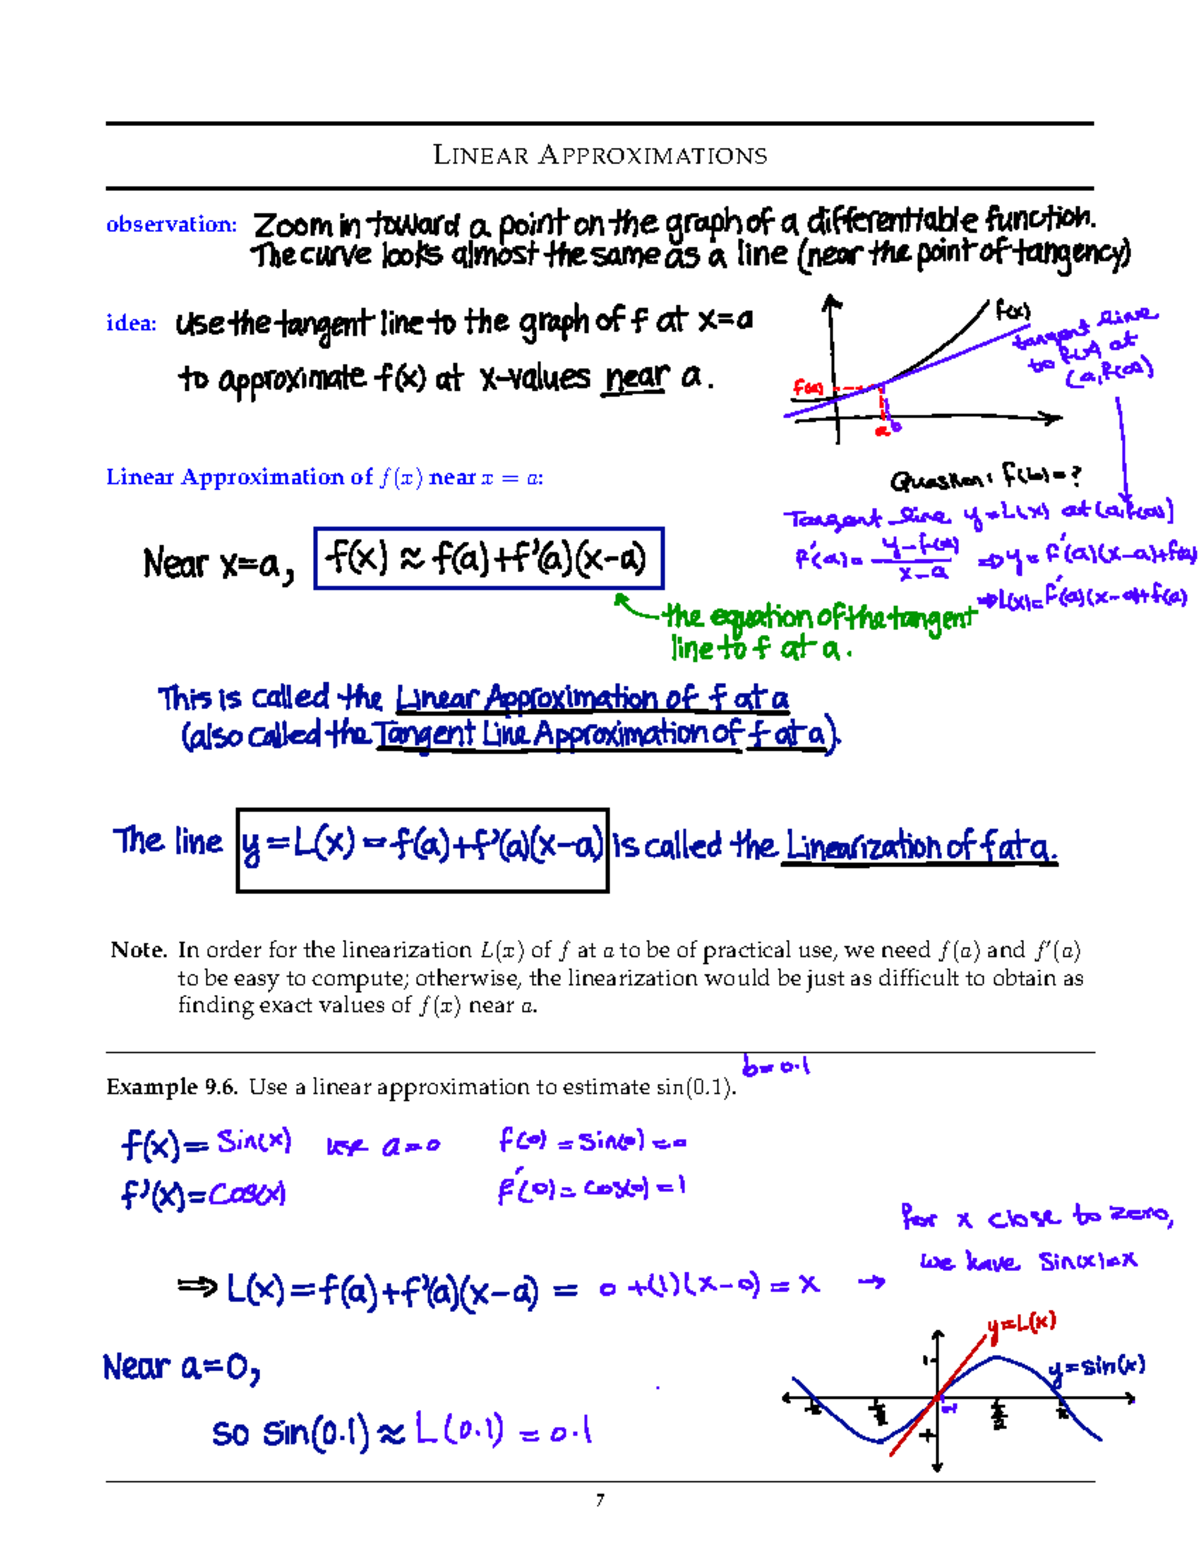 LINEAR APPROXIMATIONS
observation: Zoom in toward a point on the graph of a differentiable function.
The curve looks almost the same as a line (near the point of tangency)
idea: Use the tangent line to the graph of f at x=a
to approximate f(x) at x-values near a.
f(x)
tangent line
to f(x) at
(a, f(a))
f(a)
a b
Question: f(b)=?
Linear Approximation of f(x) near x = a:
Tangent line y=L(x) at (a, f(a))
Near x=a, f(x) ≈ f(a)+f'(a)(x-a)
f'(a) = y-f(a) / x-a ⇒ y = f'(a)(x-a)+f(a)
⇒ L(x)=f'(a)(x-a)+f(a)
the equation of the tangent
line to f at a.
This is called the Linear Approximation of f at a
(also called the Tangent Line Approximation of f at a).
The line y = L(x) = f(a)+f'(a)(x-a) is called the Linearization of f at a.
Note. In order for the linearization L(x) of f at a to be of practical use, we need f(a) and f′(a)
to be easy to compute; otherwise, the linearization would be just as difficult to obtain as
finding exact values of f(x) near a.
b=0.1
Example 9.6. Use a linear approximation to estimate sin(0.1).
f(x)= Sin(x) use a=0 f(0) = sin(0) = 0
f'(x)= Cos(x) f'(0) = cos(0) = 1
for x close to zero,
we have Sin(x)≈x
⇒ L(x)=f(a)+f'(a)(x-a) = 0 +(1)(x-0) = x →
y=L(x)
y=sin(x)
1
Near a=0,
so sin(0.1) ≈ L(0.1) = 0.1
7